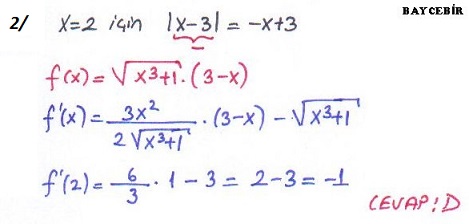 BAYCEBİR
2/ x=2 için |x-3| = -x+3
f(x)=√(x³+1).(3-x)
f'(x)= 3x²/(2√(x³+1)) .(3-x) - √(x³+1)
f'(2)= 6/3 . 1 - 3 = 2-3 = -1
CEVAP: D